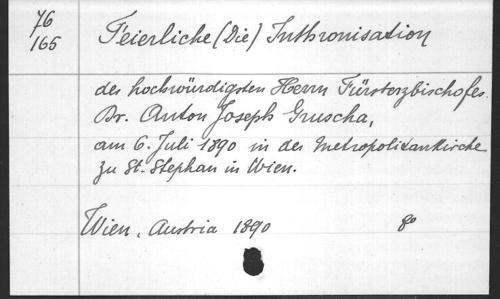 76
165
Feierliche (Die) Inthronisation
des hochwürdigsten Herrn Fürsterzbischofes
Dr. Anton Joseph Gruscha,
am 6. Juli 1890 in der Metropolitankirche
zu St. Stephan in Wien.
Wien, Austria 1890 8o